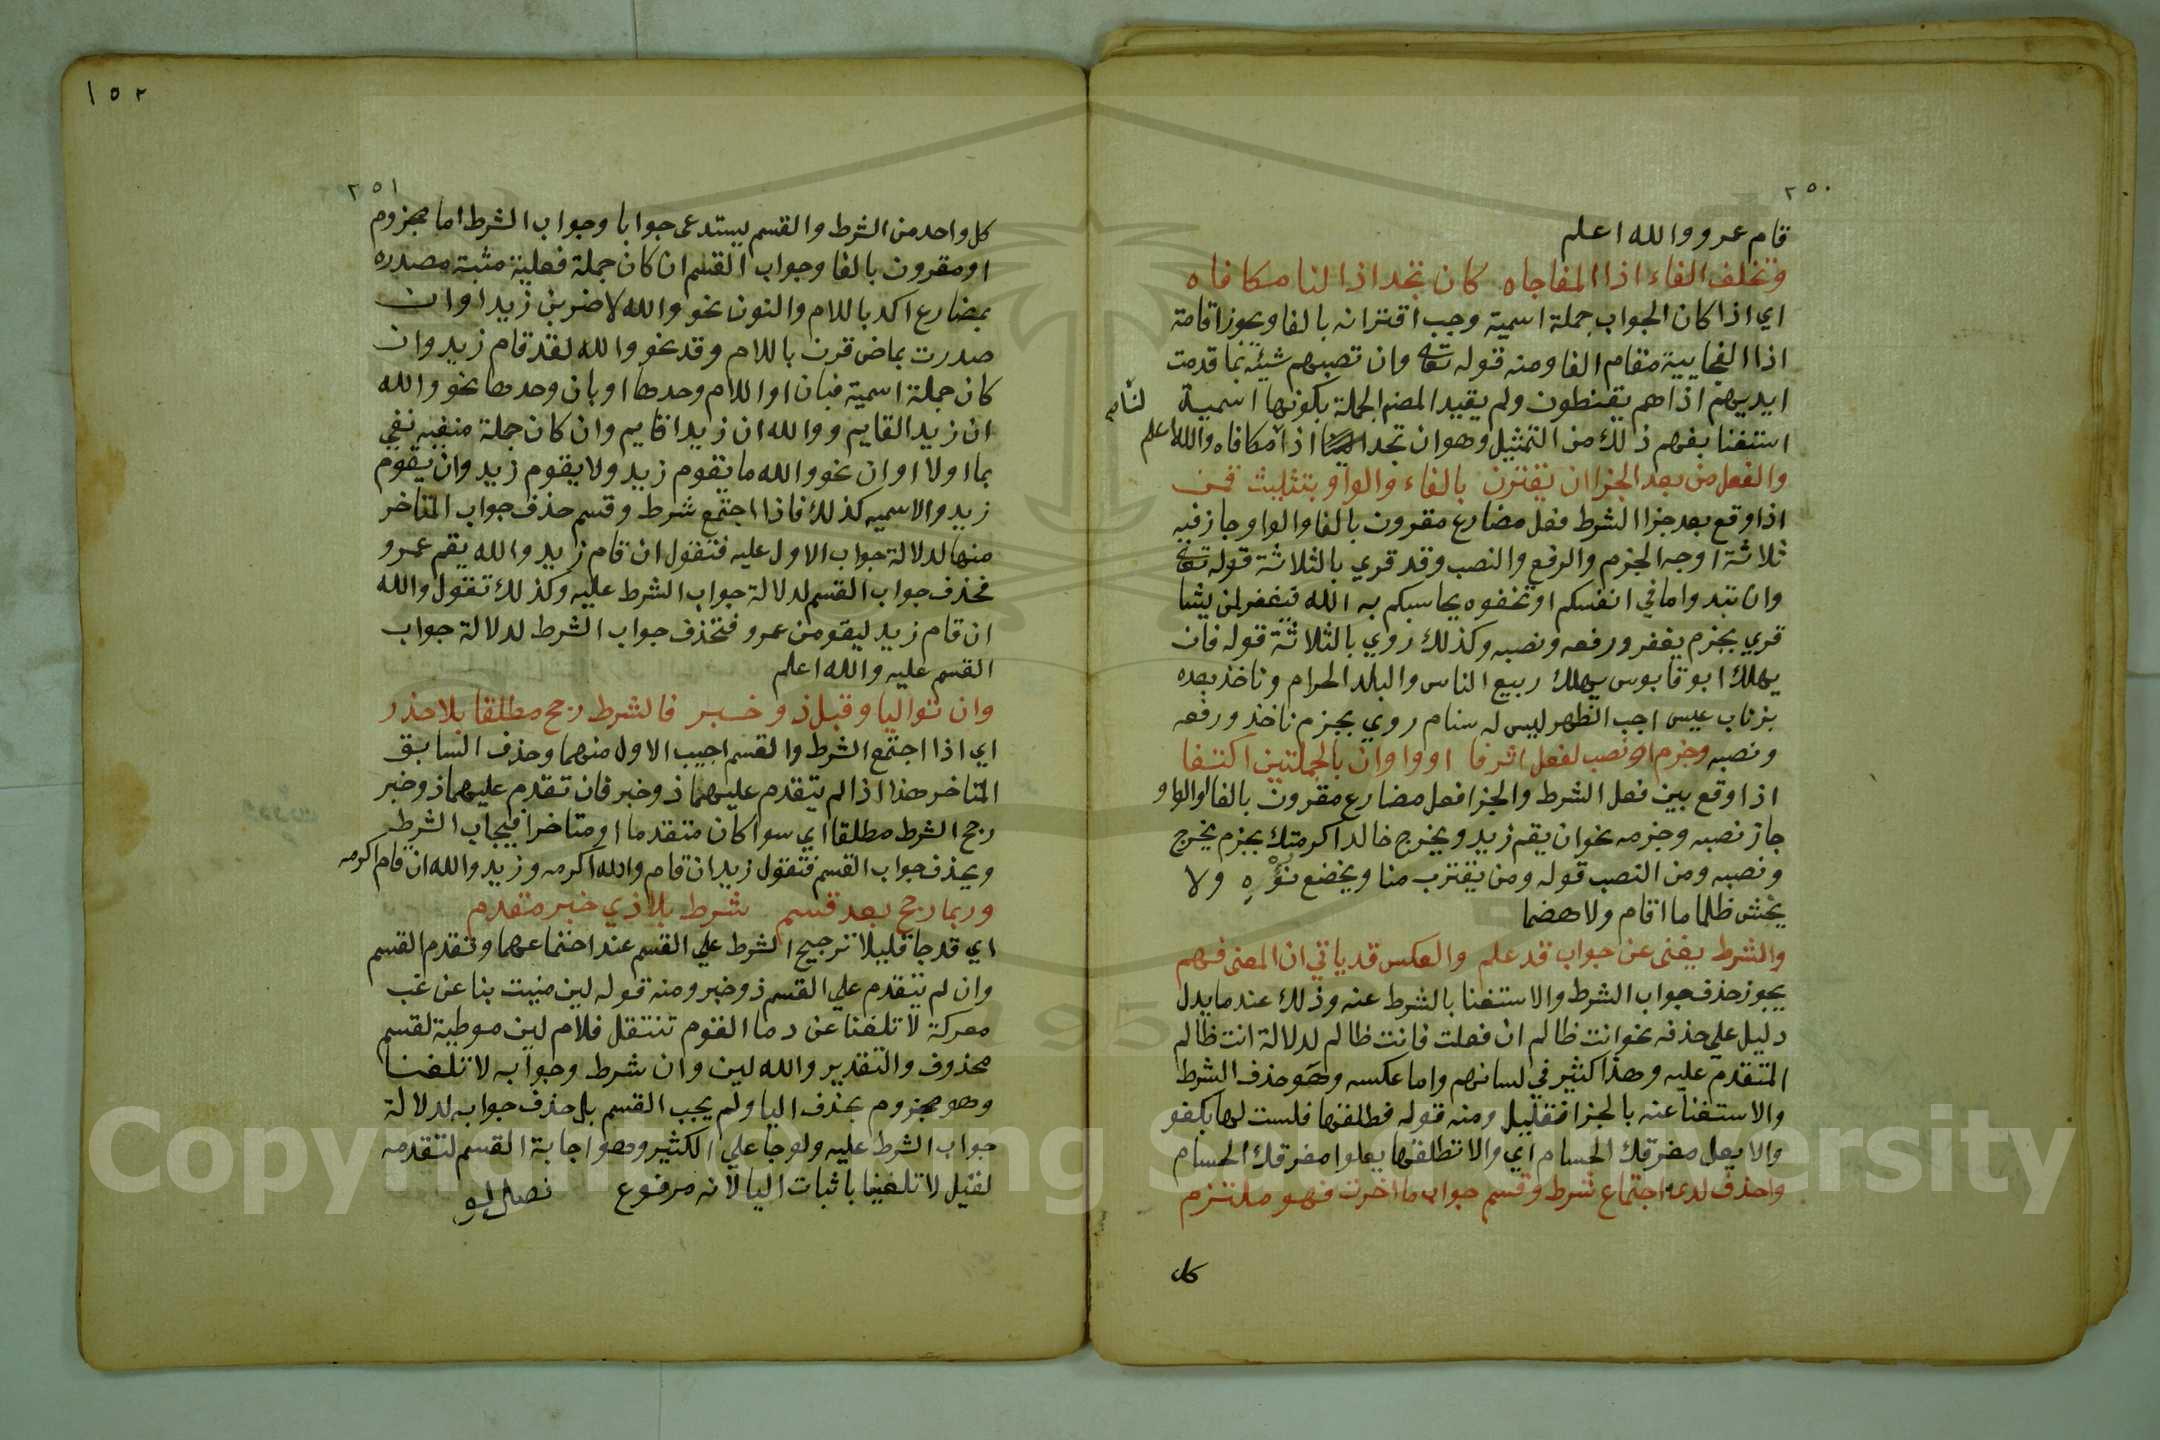 ٢٥٠
قام عمرو والله اعلم
وتخلف الفاء اذا المفاجاه كان تجد اذا لنا مكافاه
اي اذا كان الجواب جملة اسمية وجب اقترانه بالفا ويجوز اقامة
اذا الفجاييه مقام الفا ومنه قوله تعالى وان تصبهم سيئة بما قدمت
ايديهم اذا هم يقنطون ولم يقيد المصنف الجملة بكونها اسمية
استغنا بفهم ذلك من التمثيل وهو ان تجد اذا لنا مكافاه والله اعلم
والفعل من بعد الجزا ان يقترن بالفاء والواو بتثليث قمن
اذا وقع بعد جزا الشرط فعل مضارع مقرون بالفا والواو جاز فيه
ثلاثة اوجه الجزم والرفع والنصب وقد قري بالثلاثة قوله تعالى
وان تبدوا ما في انفسكم او تخفوه يحاسبكم به الله فيغفر لمن يشا
قري بجزم يغفر ورفعه ونصبه وكذلك روي بالثلاثة قوله فان
يهلك ابو قابوس يهلك ربيع الناس والبلد الحرام وناخذ بعده
بذناب عيس اجب الظهر ليس له سنام روي بجزم ناخذ ورفعه
ونصبه وجزم او نصب لفعل اثر فا او واو ان بالجملتين اكتنفا
اذا وقع بين فعل الشرط والجزا فعل مضارع مقرون بالفا او الواو
جاز نصبه وجزمه نحو ان يقم زيد ويخرج خالد اكرمتك بجزم يخرج
ونصبه ومن النصب قوله ومن يقترب منا ويخضع نؤوه ولا
يخش ظلما ما اقام ولا هضما
والشرط يغنى عن جواب قد علم والعكس قد ياتي ان المعنى فهم
يجوز حذف جواب الشرط والاستغنا بالشرط عنه وذلك عند ما يدل
دليل على حذفه نحو انت ظالم ان فعلت فانت ظالم لدلالة انت ظالم
المتقدم عليه وهذا كثير في لسانهم واما عكسه وهو حذف الشرط
والاستغنا عنه بالجزا فقليل ومنه قوله فطلقها فلست لها بكفو
والا يعل مفرقك الحسام اي والا تطلقها يعلوا مفرقك الحسام
واحذف لدى اجتماع شرط وقسم جواب ما اخرت فهو ملتزم
كل
١٥٢
٢٥١
كل واحد من الشرط والقسم يستدعى جوابا وجواب الشرط اما مجزوم
او مقرون بالفا وجواب القسم ان كان جملة فعلية مثبتة مصدره
بمضارع اكد باللام والنون نحو والله لاضربن زيدا وان
صدرت بماض قرن باللام وقد نحو والله لقد قام زيد وان
كان جملة اسمية فبان او اللام وحدها او بان وحدها نحو والله
ان زيد القايم ووالله ان زيدا قايم وان كان جملة منفيه نفي
بما او لا او ان نحو والله ما يقوم زيد ولا يقوم زيد وان يقوم
زيد والاسميه كذلك فاذا اجتمع شرط وقسم حذف جواب المتاخر
منهما لدلالة جواب الاول عليه فتقول ان قام زيد والله يقم عمرو
فحذف جواب القسم لدلالة جواب الشرط عليه وكذلك تقول والله
ان قام زيد ليقومن عمرو فتحذف جواب الشرط لدلالة جواب
القسم عليه والله اعلم
وان تواليا وقبل ذو خبر فالشرط رجح مطلقا بلا حذر
اي اذا اجتمع الشرط والقسم اجيب الاول منهما وحذف السابق
المتاخر هذا اذا لم يتقدم عليهما ذو خبر فان تقدم عليهما ذو خبر
رجح الشرط مطلقا اي سوا كان متقدما او متاخرا فيجاب الشرط
ويحذف جواب القسم فتقول زيد ان قام والله اكرمه وزيد والله ان قام اكرمه
وربما رجح بعد قسم شرط بلا ذي خبر متقدم
اي قد جا قليلا ترجيح الشرط علي القسم عند اجتماعهما وتقدم القسم
وان لم يتقدم علي القسم ذو خبر ومنه قوله لين منيت بنا عن غب
معركة لا تلفنا عن دما القوم تنتقل فلام لين موطية لقسم
محذوف والتقدير والله لين وان شرط وجوابه لا تلفنا
وهو مجزوم بحذف اليا ولم يجب القسم بل حذف جوابه لدلالة
جواب الشرط عليه ولو جا علي الكثير وهو اجابة القسم لتقدمه
لقيل لا تلفينا باثبات اليا لانه مرفوع فصل لو